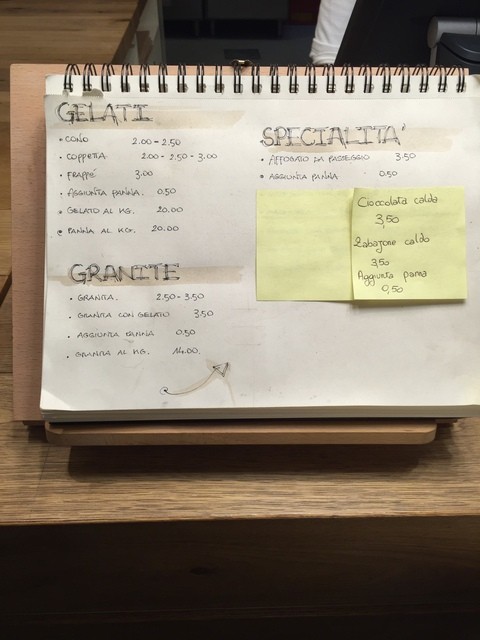 GELATI
• CONO 2.00 - 2.50
• COPPETTA 2.00 - 2.50 - 3.00
• FRAPPÈ 3.00
• AGGIUNTA PANNA. 0.50
• GELATO AL KG. 20.00
• PANNA AL KG. 20.00
GRANITE
• GRANITA. 2.50 - 3.50
• GRANITA CON GELATO 3.50
• AGGIUNTA PANNA 0.50
• GRANITA AL KG. 14.00.
SPECIALITA'
• AFFOGATO DA PASSEGGIO 3.50
• AGGIUNTA PANNA 0.50
Cioccolata calda
3,50
Zabajone caldo
3,50
Aggiunta panna
0,50